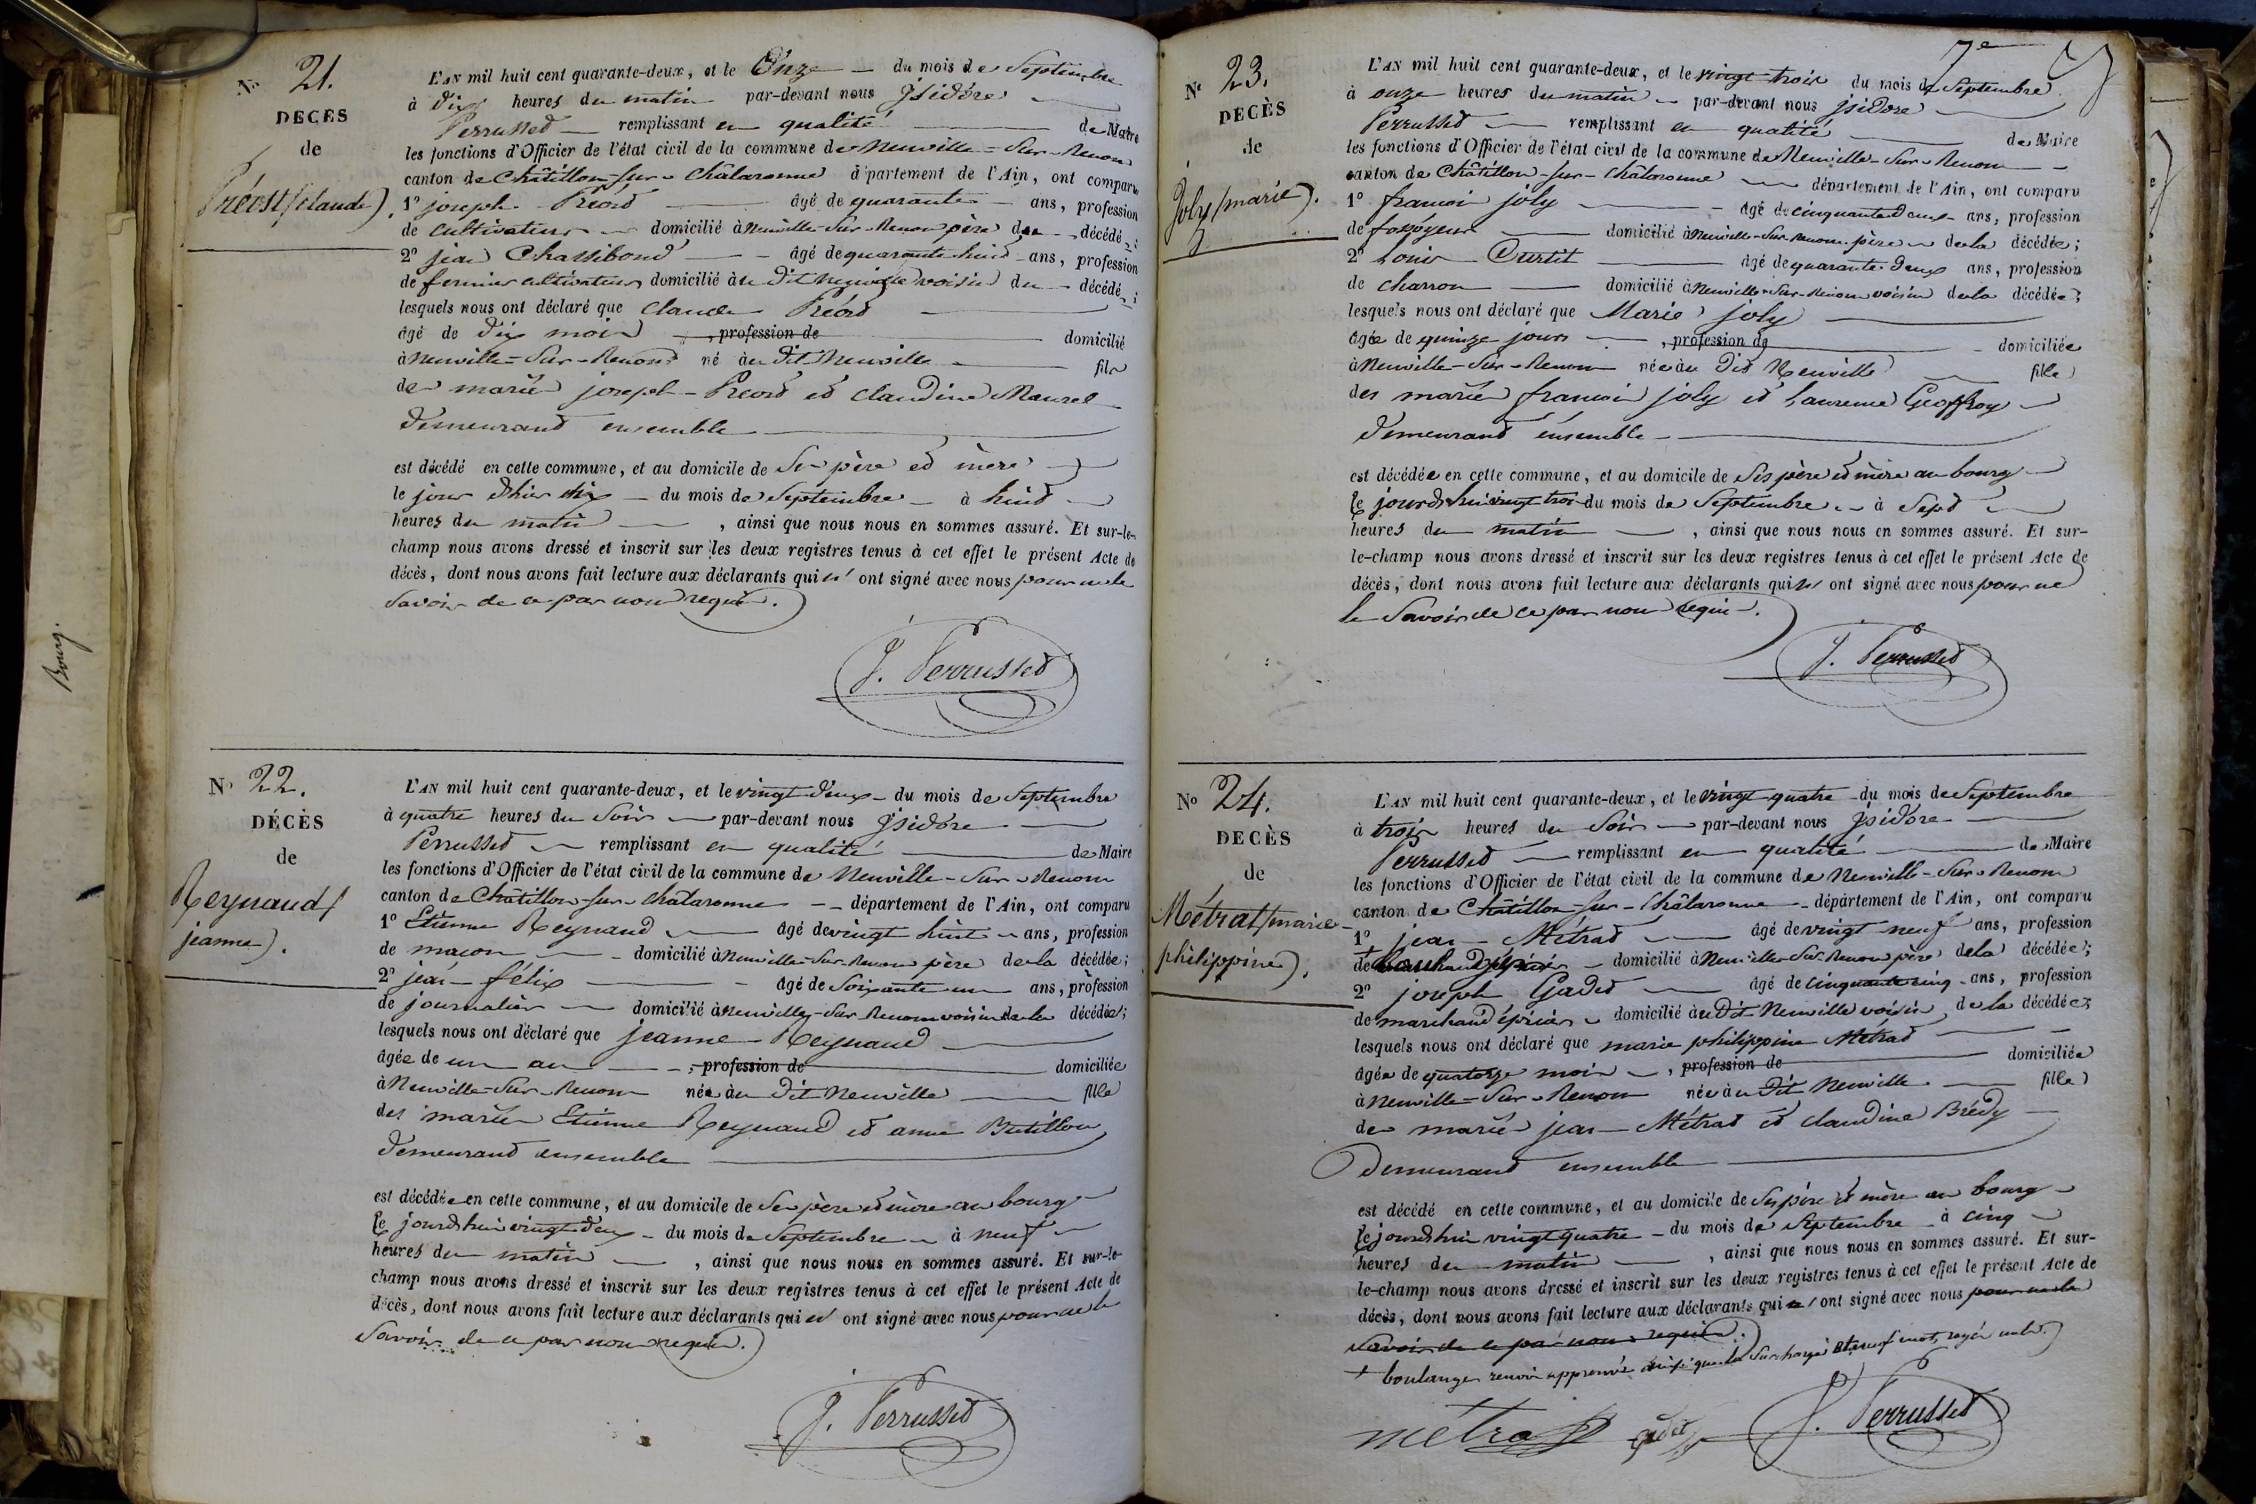 Bourg.
No 21.
DECES
de
Préost (claude).
L'AN mil huit cent quarante-deux, et le Onze du mois de Septembre
à dix heures du matin par-devant nous jsidore
Perrussed remplissant en qualité de Maire
les fonctions d'Officier de l'état civil de la commune de Neuville-Sur-Renom
canton de Châtillon-sur-Châlaronne département de l'Ain, ont comparu
1º joseph Préord âgé de quarante ans, profession
de cultivateur domicilié à Neuville-Sur-Renom père du décédé;
2º jean Chassiboud âgé de quarante huit ans, profession
de fermier cultivateur domicilié au dit Neuville voisin du décédé;
lesquels nous ont déclaré que claude Préord
âgé de dix mois , profession de domicilié
à Neuville-Sur-Renom né au dit Neuville fils
des mariés joseph Préord et claudine Maurel
demeurand ensemble
est décédé en cette commune, et au domicile de Ses père et mère
le jour d'hier dix du mois de Septembre à huit
heures du matin , ainsi que nous nous en sommes assuré. Et sur-le-
champ nous avons dressé et inscrit sur les deux registres tenus à cet effet le présent Acte de
décès, dont nous avons fait lecture aux déclarants qui n' ont signé avec nous pour ne le
Savoir de ce par nous requis.
J. Perrussed
No 22.
DÉCÈS
de
Reynaud (
jeanne).
L'AN mil huit cent quarante-deux, et le vingt deux du mois de Septembre
à quatre heures du Soir par-devant nous jsidore
Perrussed remplissant en qualité de Maire
les fonctions d'Officier de l'état civil de la commune de Neuville-Sur-Renom
canton de Châtillon-sur-Châlaronne département de l'Ain, ont comparu
1º Etienne Reynaud âgé de vingt huit ans, profession
de maçon domicilié à Neuville-Sur-Renom père de la décédée;
2º jean félix âgé de Soixante un ans, profession
de journalier domicilié à Neuville-Sur-Renom voisin de la décédée;
lesquels nous ont déclaré que jeanne Reynaud
âgée de un an , profession de domiciliée
à Neuville-Sur-Renom née au dit Neuville fille
des mariés Etienne Reynaud et anne Butillon
demeurand ensemble
est décédée en cette commune, et au domicile de Ses père et mère au bourg
le jourdhui vingt deux du mois de Septembre à neuf
heures du matin , ainsi que nous nous en sommes assuré. Et sur-le-
champ nous avons dressé et inscrit sur les deux registres tenus à cet effet le présent Acte de
décès, dont nous avons fait lecture aux déclarants qui n' ont signé avec nous pour ne le
Savoir de ce par nous requis.
J. Perrussed
7e
No 23.
DECÈS
de
Joly (marie).
L'AN mil huit cent quarante-deux, et le vingt trois du mois de Septembre
à onze heures du matin par-devant nous jsidore
Perrussed remplissant en qualité de Maire
les fonctions d'Officier de l'état civil de la commune de Neuville-Sur-Renom
canton de Châtillon-sur-Châlaronne département de l'Ain, ont comparu
1º francois joly âgé de cinquante deux ans, profession
de fossoyeur domicilié à Neuville-Sur-Renom père de la décédée;
2º Louis Curtit âgé de quarante deux ans, profession
de charron domicilié à Neuville-Sur-Renom voisin de la décédée;
lesquels nous ont déclaré que Marie joly
âgée de quinze jours , profession de domiciliée
à Neuville-Sur-Renom née au dit Neuville fille
des mariés francois joly et Laurence Geoffroy
demeurand ensemble
est décédée en cette commune, et au domicile de Ses père et mère au bourg
le jourdhui vingt trois du mois de Septembre à Sept
heures du matin , ainsi que nous nous en sommes assuré. Et sur-
le-champ nous avons dressé et inscrit sur les deux registres tenus à cet effet le présent Acte de
décès, dont nous avons fait lecture aux déclarants qui n' ont signé avec nous pour ne
le Savoir de ce par nous requis.
J. Perrussed
No 24.
DECÈS
de
Métrat (marie-
philippine).
L'AN mil huit cent quarante-deux, et le vingt quatre du mois de Septembre
à trois heures du Soir par-devant nous jsidore
Perrussed remplissant en qualité de Maire
les fonctions d'Officier de l'état civil de la commune de Neuville-Sur-Renom
canton de Châtillon-sur-Châlaronne département de l'Ain, ont comparu
1º jean Métrat âgé de vingt neuf ans, profession
de marchand épicier domicilié à Neuville-Sur-Renom père de la décédée;
2º joseph Gadet âgé de cinquante cinq ans, profession
de marchand épicier domicilié au dit Neuville voisin de la décédée;
lesquels nous ont déclaré que marie philippine Métrat
âgée de quatorze mois , profession de domiciliée
à Neuville-Sur-Renom née au dit Neuville fille
des mariés jean Métrat et claudine Brédy
demeurand ensemble
est décédé en cette commune, et au domicile de Ses père et mère au bourg
le jourdhui vingt quatre du mois de Septembre à cinq
heures du matin , ainsi que nous nous en sommes assuré. Et sur-
le-champ nous avons dressé et inscrit sur les deux registres tenus à cet effet le présent Acte de
décès, dont nous avons fait lecture aux déclarants qui ont signé avec nous pour ne le
Savoir de ce par nous requis.
+ boulanger renvoi approuvé ainsi que la surcharge et neuf mots rayés nuls.
métra gadet J. Perrussed